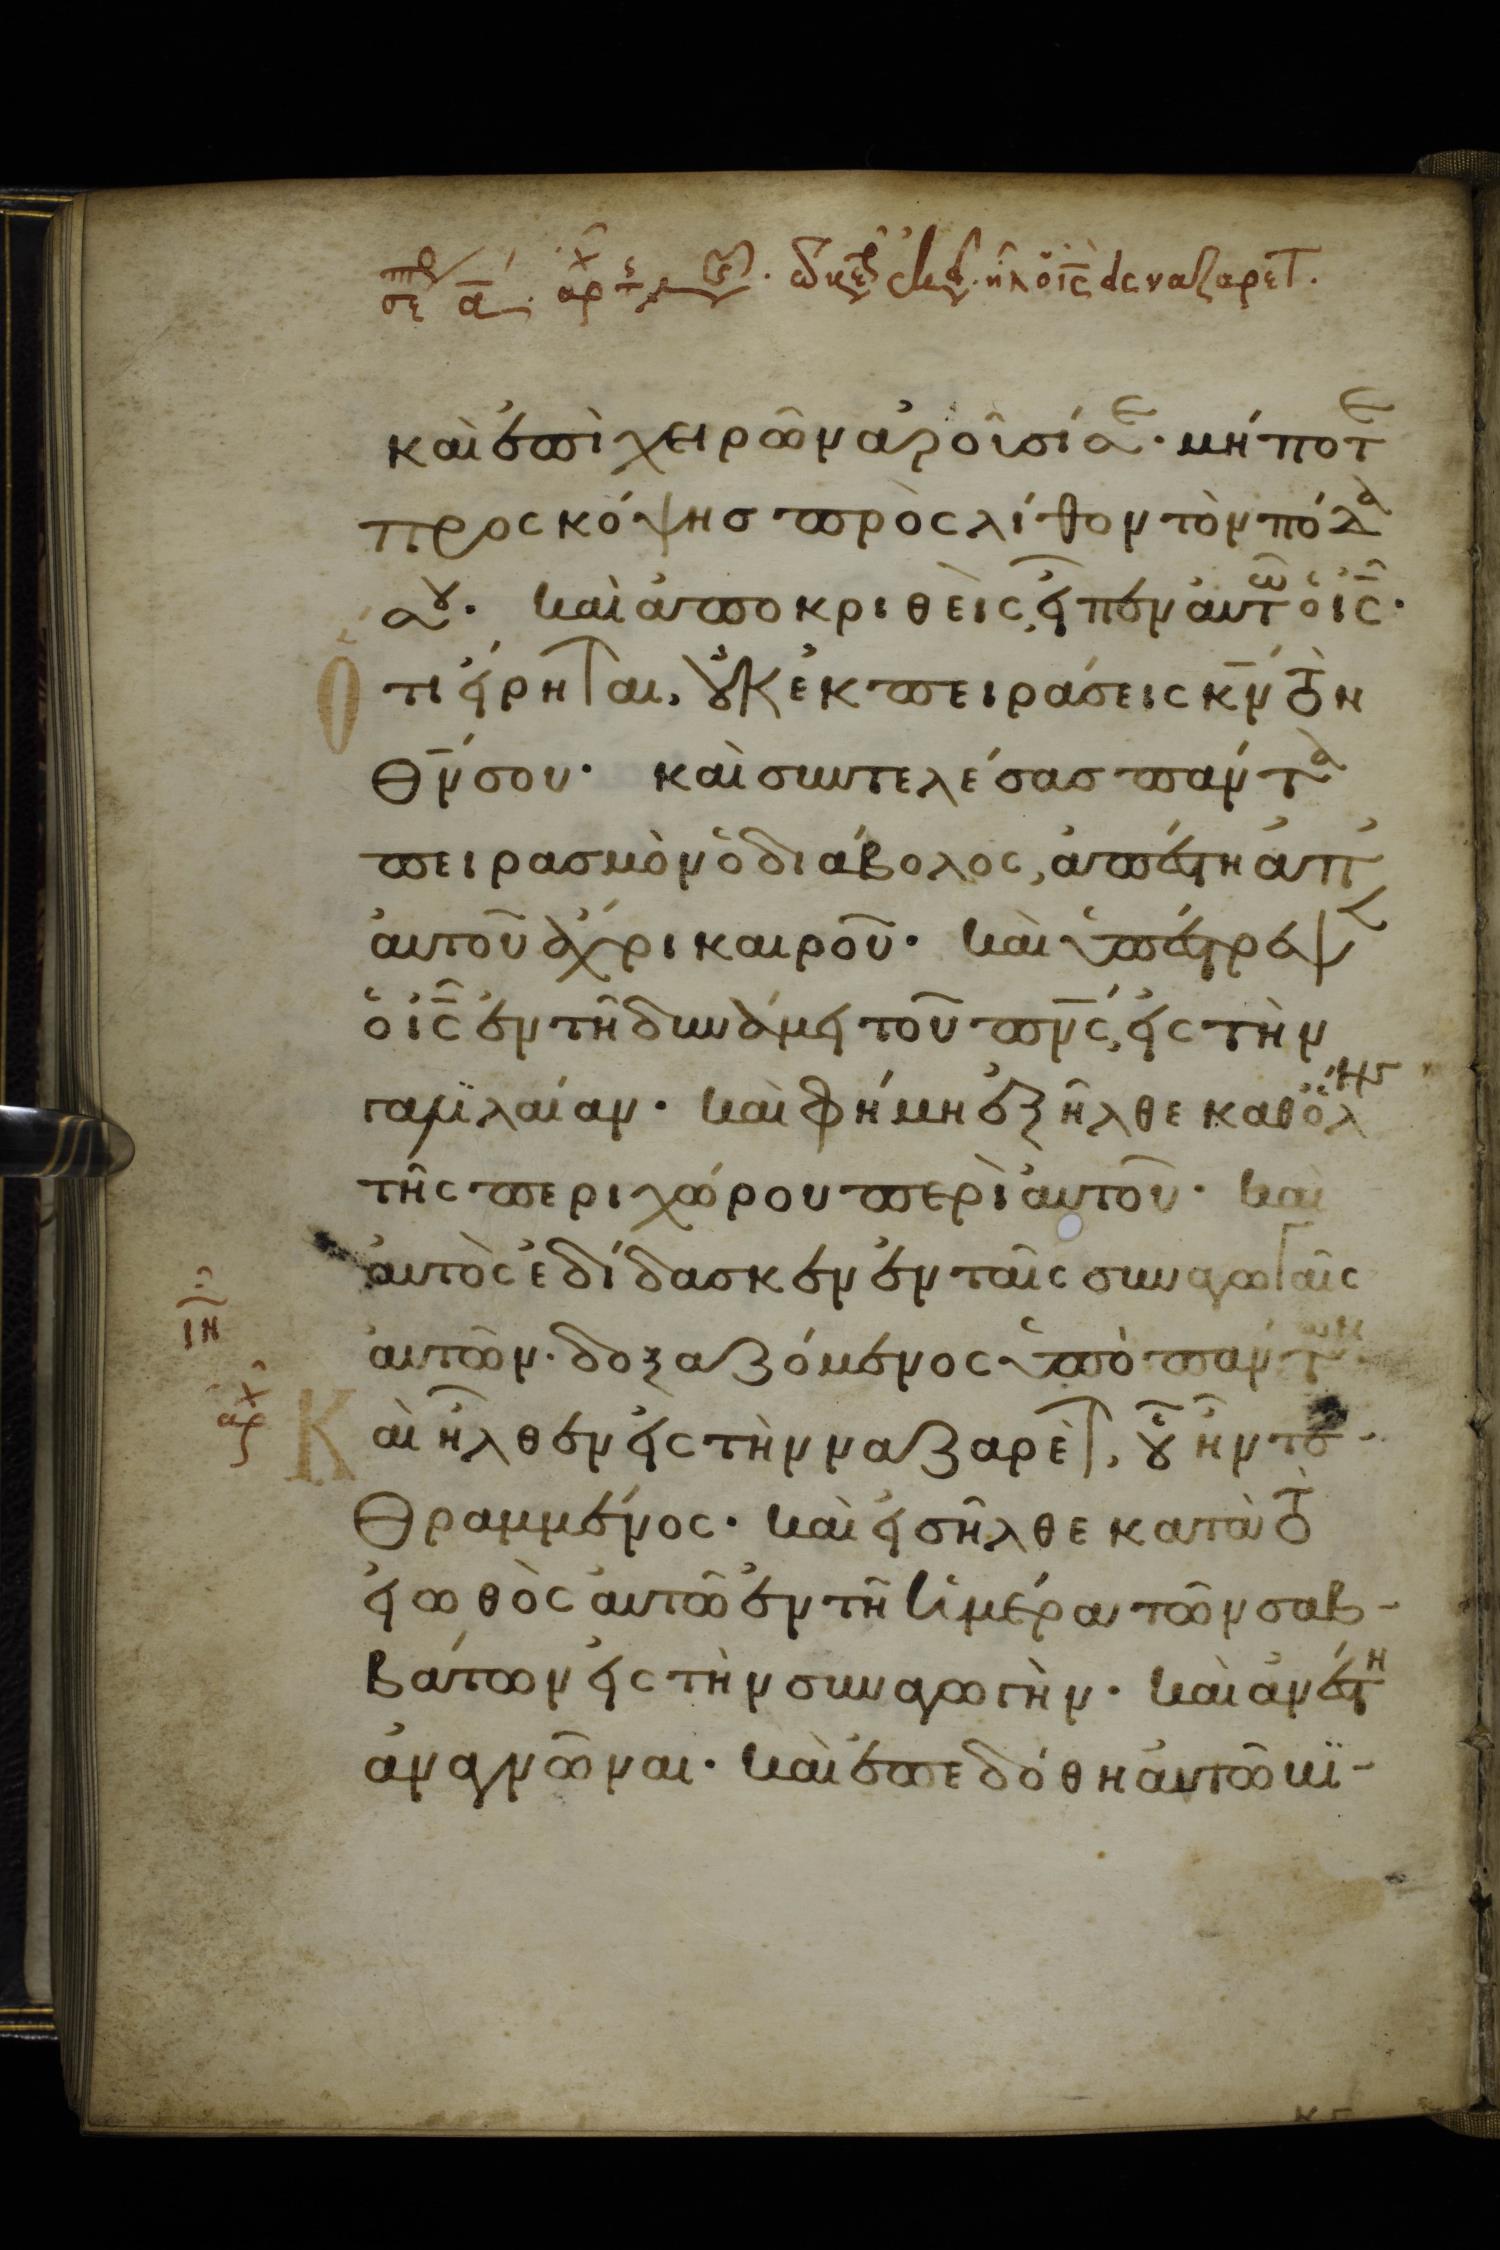 καὶ ἐπὶ χειρῶν ἀροῦσί σε· μήποτε
προσκόψης πρὸς λίθον τὸν πόδα
σου· καὶ ἀποκριθεὶς, εἶπεν αὐτῶ ὁ ις·
Ὅτι εἴρηται, οὐκ ἐκπειράσεις κν τὸν
θν σου· καὶ συντελέσας πάντα
πειρασμὸν ὁ διάβολος, ἀπέστη ἀπ
αὐτοῦ ἄχρι καιροῦ· καὶ ὑπέστρεψεν
ὁ ις ἐν τῆ δυνάμει τοῦ πνς, εἰς τὴν
γαλιλαίαν· καὶ φήμη ἐξῆλθε καθ ὅλης
τῆς περιχώρου περὶ αὐτοῦ· καὶ
αὐτὸς ἐδίδασκεν ἐν ταῖς συναγωγαῖς
αὐτῶν· δοξαζόμενος ὑπὸ πάντων·
ιη
αρχ
Καὶ ἦλθεν εἰς τὴν ναζαρὲτ, οὗ ἦν τε-
θραμμένος· καὶ εἰσῆλθε κατὰ τὸ
εἰωθὸς αὐτῶ ἐν τῆ ἡμέρα τῶν σαβ-
βάτων εἰς τὴν συναγωγήν· καὶ ἀνέστη
ἀναγνῶναι· καὶ ἐπεδόθη αὐτῶ βι-